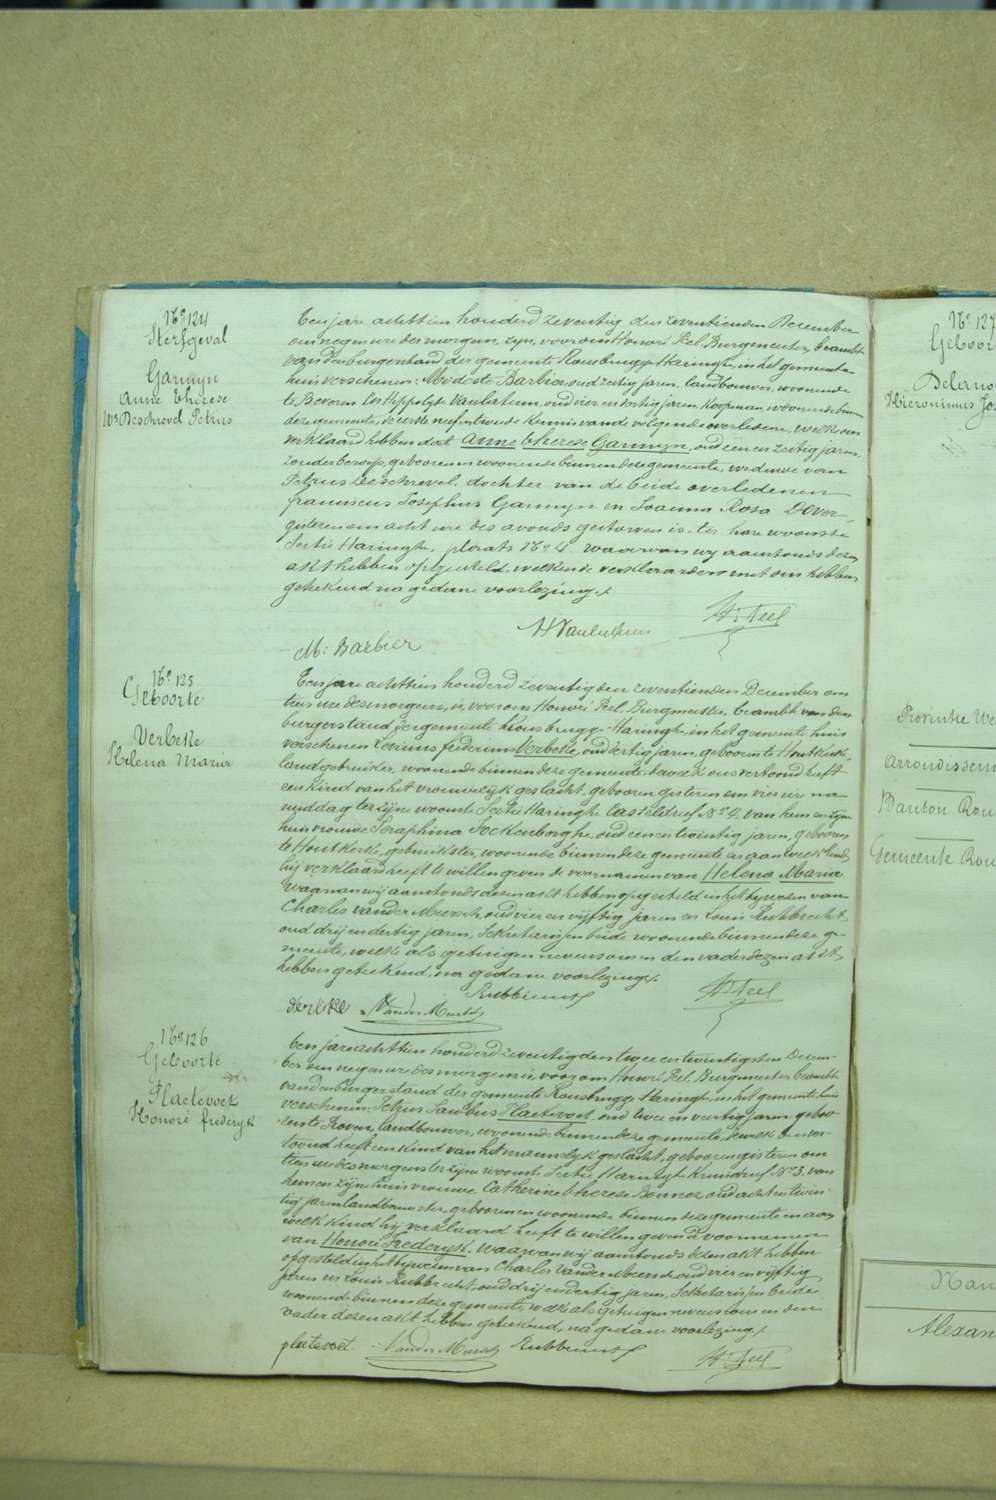 No 124
Sterfgeval
Garmyn
Anne Therese
We Deschrevel Petrus
Een jare achttien honderd zeventig den zeventienden December
om negen ure des morgens, zyn, voor ons Honoré Feel, Burgemeester, beambte
van den burgerstand der gemeente Rousbrugge-Haringhe, in het gemeente
huis verschenen: Modeste Barbier, oud zestig jaren, landbouwer, woonende
te Beveren en Hyppolyte Vanlatum, oud vier en dertig jaren, koopman, woonende binnen
deze gemeente, de eerste neef en tweede kennis van de volgende overledene, welke ons
verklaard hebben dat Anne Therese Garmyn, oud een en zestig jaren,
zonder beroep, geboren en woonende binnen deze gemeente, weduwe van
Petrus Deschrevel, dochter van de beide overledenen
franciscus Josephus Garmyn en Joanna Rosa Dever
gisteren om acht ure des avonds gestorven is, ter hare woonste
Sectie Haringhe, plaats No 4. waarvan wy aanstonds dezen
akt hebben opgesteld, welken de verklaarders met ons hebben
geteekend na gedane voorlezing.
H. Feel
M: Barbier
No 125
Geboorte
Verbeke
Helena Maria
Een jare achttien honderd zeventig den zeventienden December om
tien ure des morgens, is, voor ons Honoré Feel, Burgmeester, beambte van den
burgerstand, der gemeente Rousbrugge-Haringhe, in het gemeente huis
verschenen Verbeke, oud dertig jaren, geboren te Houtkerke,
landgebruiker, woonende binnen deze gemeente, dewelk ons vertoond heeft
een kind van het vrouwelyk geslacht, geboren gisteren om vier ure na
middag ter zyne woonste Sectie Haringhe No 4, van hem en zyne
huisvrouwe Seraphina Fockenberghe, oud een en twintig jaren, geboren
te Houtkerke, gebruikster, woonende binnen deze gemeente en aan welk kind
hij verklaard heeft te willen geven de voornamen van Helena Maria
waarvan wij aanstonds dezen akt hebben opgesteld in het bywezen van
Charles Vander Meersch, oud vier en vijftig jaren en Louis Rubbrecht,
oud drij en dertig jaren, Sekretarissen beide woonende binnen deze ge-
meente, welke als getuigen nevens ons en den vader dezen akt
hebben geteekend, na gedane voorlezing.
H. Feel
Verbeke
Vander Meersch
No 126
Geboorte
Plaetevoet
Honoré frederyk
Een jare achttien honderd zeventig den twee en twintigsten Decem-
ber om negen ure des morgens is, voor ons Honoré Feel, Burgmeester beambte
van den burgerstand der gemeente Rousbrugge-Haringhe, in het gemeente huis
verschenen, Petrus Jacobus Plaetevoet, oud twee en veertig jaren, gebo-
ren te Proven, landbouwer, woonende binnen deze gemeente, dewelk ons ver-
toond heeft een kind van het mannelyk geslacht, geboren gisteren om
tien ure des morgens ter zyne woonste Sectie Haringhe No 3, van
hem en zijne huisvrouwe Catherine Therese Bonnez, oud acht en twin-
tig jaren landbouwster, geboren en woonende binnen deze gemeente en aan
welk kind hij verklaard heeft te willen geven de voornamen
van Honoré Frederyk. waarvan wij aanstonds dezen akt hebben
opgesteld in het bywezen van Charles Vander Meersch, oud vier en vijftig
jaren en Louis Rubbrecht, oud drij en dertig jaren, Sekretarissen beide
woonende binnen deze gemeente, welke als getuigen nevens ons en den
vader dezen akt hebben geteekend, na gedane voorlezing.
plaetevoet
Vander Meersch
H. Feel
No 127
Geboor
Hieronimus Jo
Provintie We
Arrondissem
Canton Rou
Gemeente Rou
Nam
Alexan